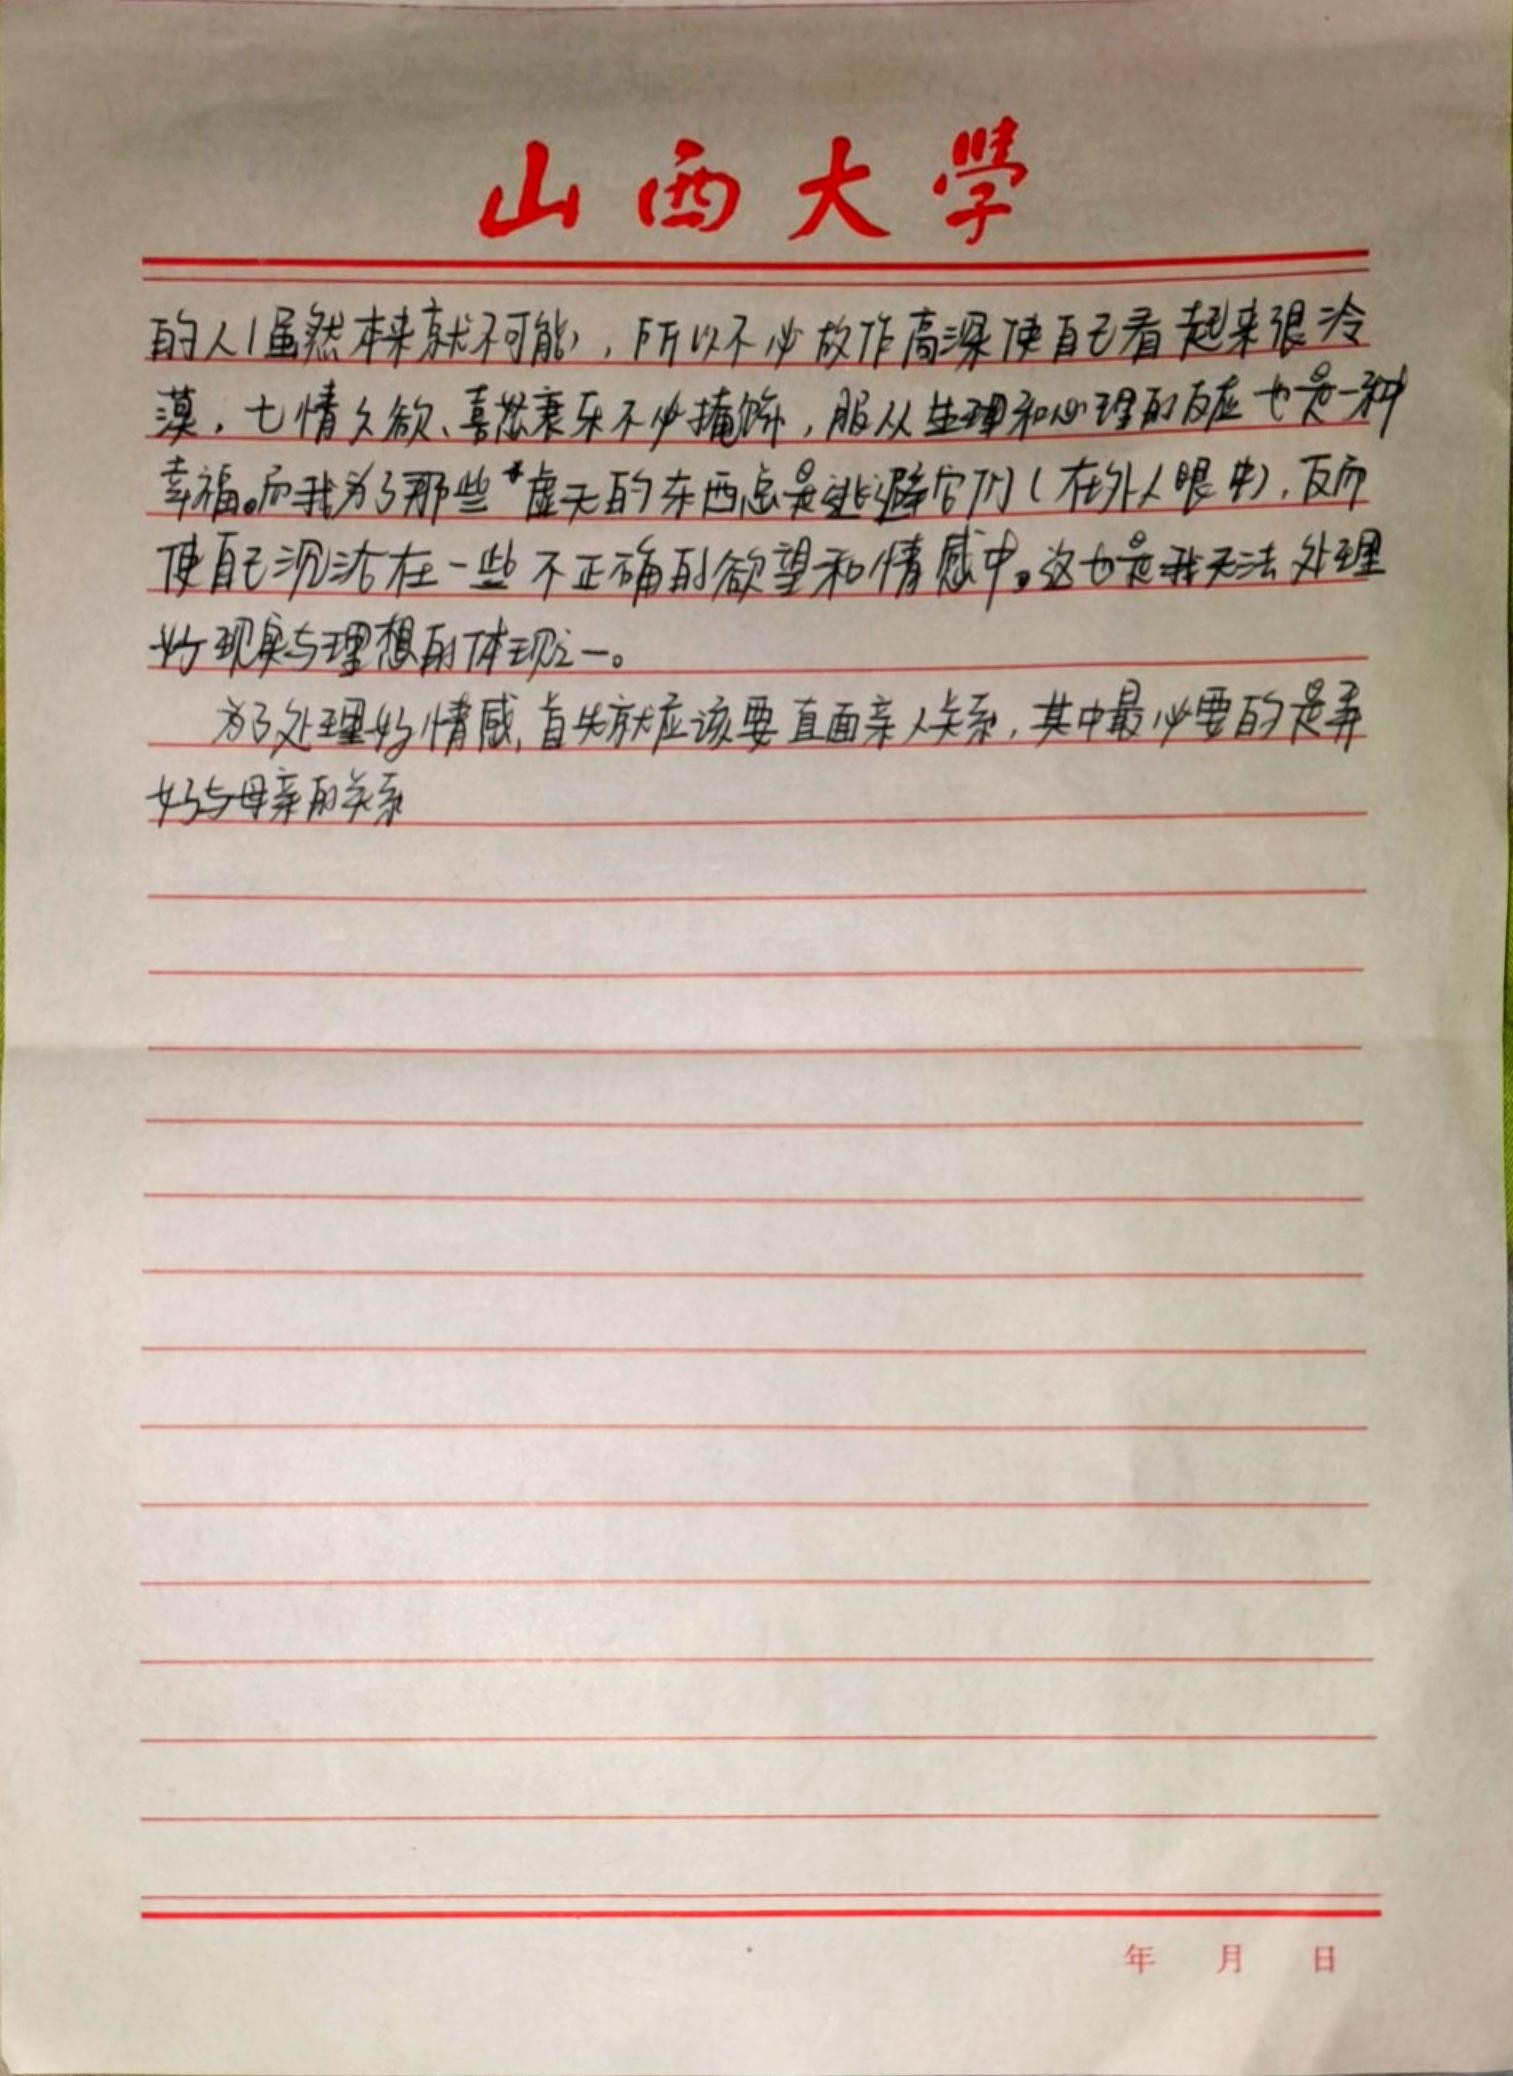 山西大學
的人(虽然本来就不可能),所以不必故作高深使自己看起来很冷
漠,七情久欲、喜怒哀乐不必掩饰,服从生理和心理的反应也是一种
幸福。而我为了那些虚无的东西总是逃避它们(在外人眼中),反而
使自己沉沾在一些不正确的欲望和情感中。这也是我无法处理
好现实与理想的体现之一。
为了处理好情感,首先就应该要直面亲人关系,其中最必要的是弄
好与母亲的关系
年 月 日